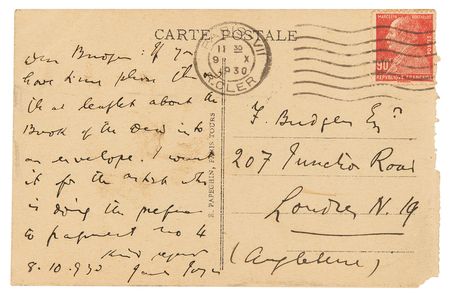 CARTE POSTALE
PARIS VII
11 30
9 X
1930
R. CLER
MARCELIN BERTHELOT
90c
RÉPUBLIQUE FRANÇAISE
Dear Budgen: If you
have time please throw
that leaflet about the
Book of the Dead into
an envelope. I want
it for the artist who
is doing the preface
to fragment no 4
Kind regards
8.10.930 James Joyce
E. PAPEGHIN, PARIS TOURS
F. Budgen Esqr
207 Junction Road
Londres N. 19
(Angleterre)